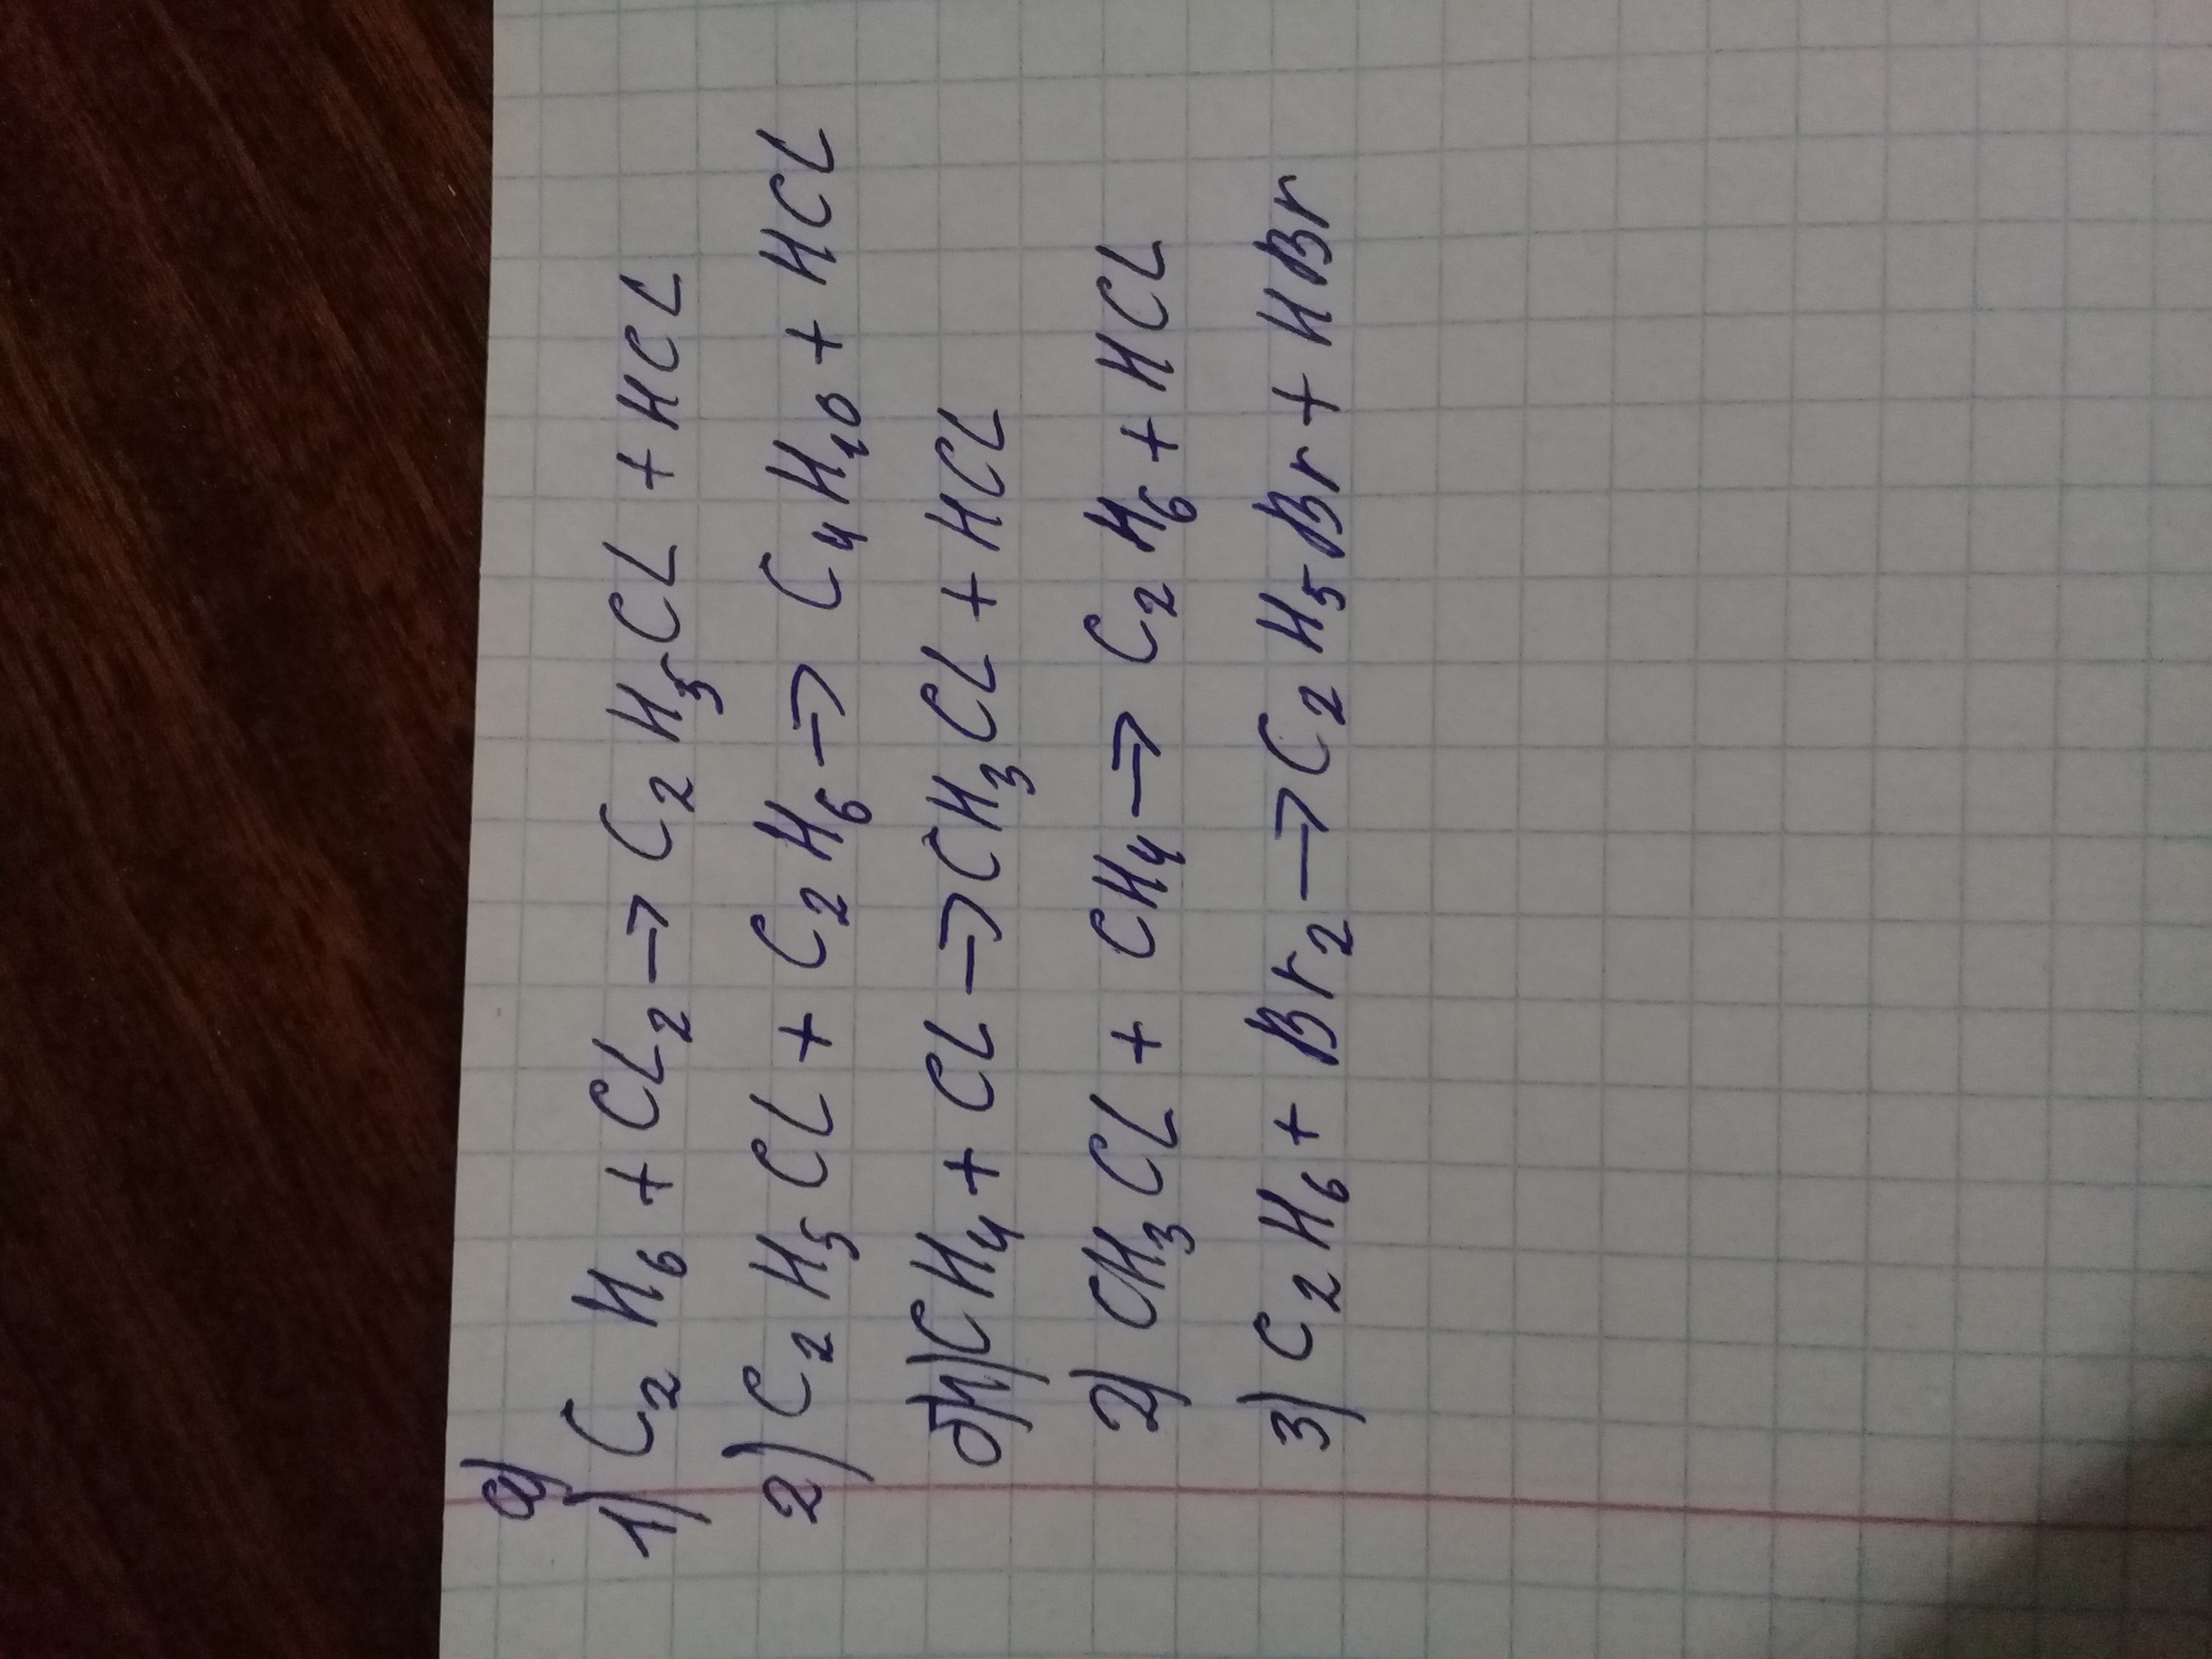 а)
1) C₂H₆ + CL₂ → C₂H₅CL + HCL
2) C₂H₅CL + C₂H₆ → C₄H₁₀ + HCL
б) 1) CH₄ + CL → CH₃CL + HCL
2) CH₃CL + CH₄ → C₂H₆ + HCL
3) C₂H₆ + Br₂ → C₂H₅Br + HBr